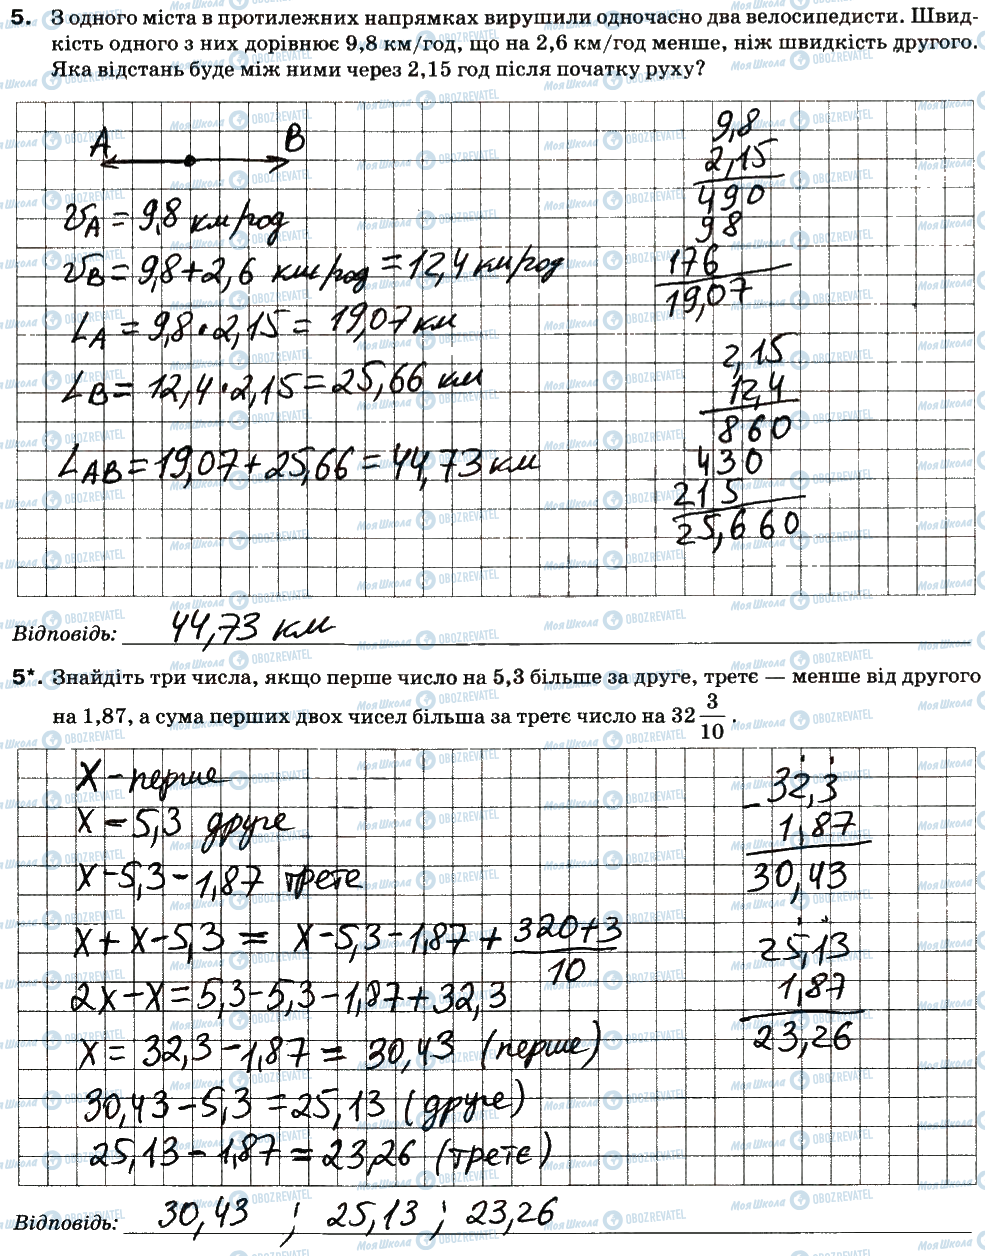 5. З одного міста в протилежних напрямках вирушили одночасно два велосипедисти. Швид-
кість одного з них дорівнює 9,8 км/год, що на 2,6 км/год менше, ніж швидкість другого.
Яка відстань буде між ними через 2,15 год після початку руху?
A B
V_A = 9,8 км/год
V_B = 9,8 + 2,6 км/год = 12,4 км/год
L_A = 9,8 · 2,15 = 19,07 км
L_B = 12,4 · 2,15 = 25,66 км
L_AB = 19,07 + 25,66 = 44,73 км
9,8
2,15
490
98
176
19,07
2,15
12,4
860
430
215
25,660
Відповідь: 44,73 км
5*. Знайдіть три числа, якщо перше число на 5,3 більше за друге, третє — менше від другого
на 1,87, а сума перших двох чисел більша за третє число на 32 3/10 .
X - перше
X - 5,3 друге
X - 5,3 - 1,87 трете
X + X - 5,3 = X - 5,3 - 1,87 + (320+3)/10
2X - X = 5,3 - 5,3 - 1,87 + 32,3
X = 32,3 - 1,87 = 30,43 (перше)
30,43 - 5,3 = 25,13 (друге)
25,13 - 1,87 = 23,26 (третє)
- 32,3
1,87
30,43
25,13
1,87
23,26
Відповідь: 30,43 ; 25,13 ; 23,26
МояШкола OBOZREVATEL